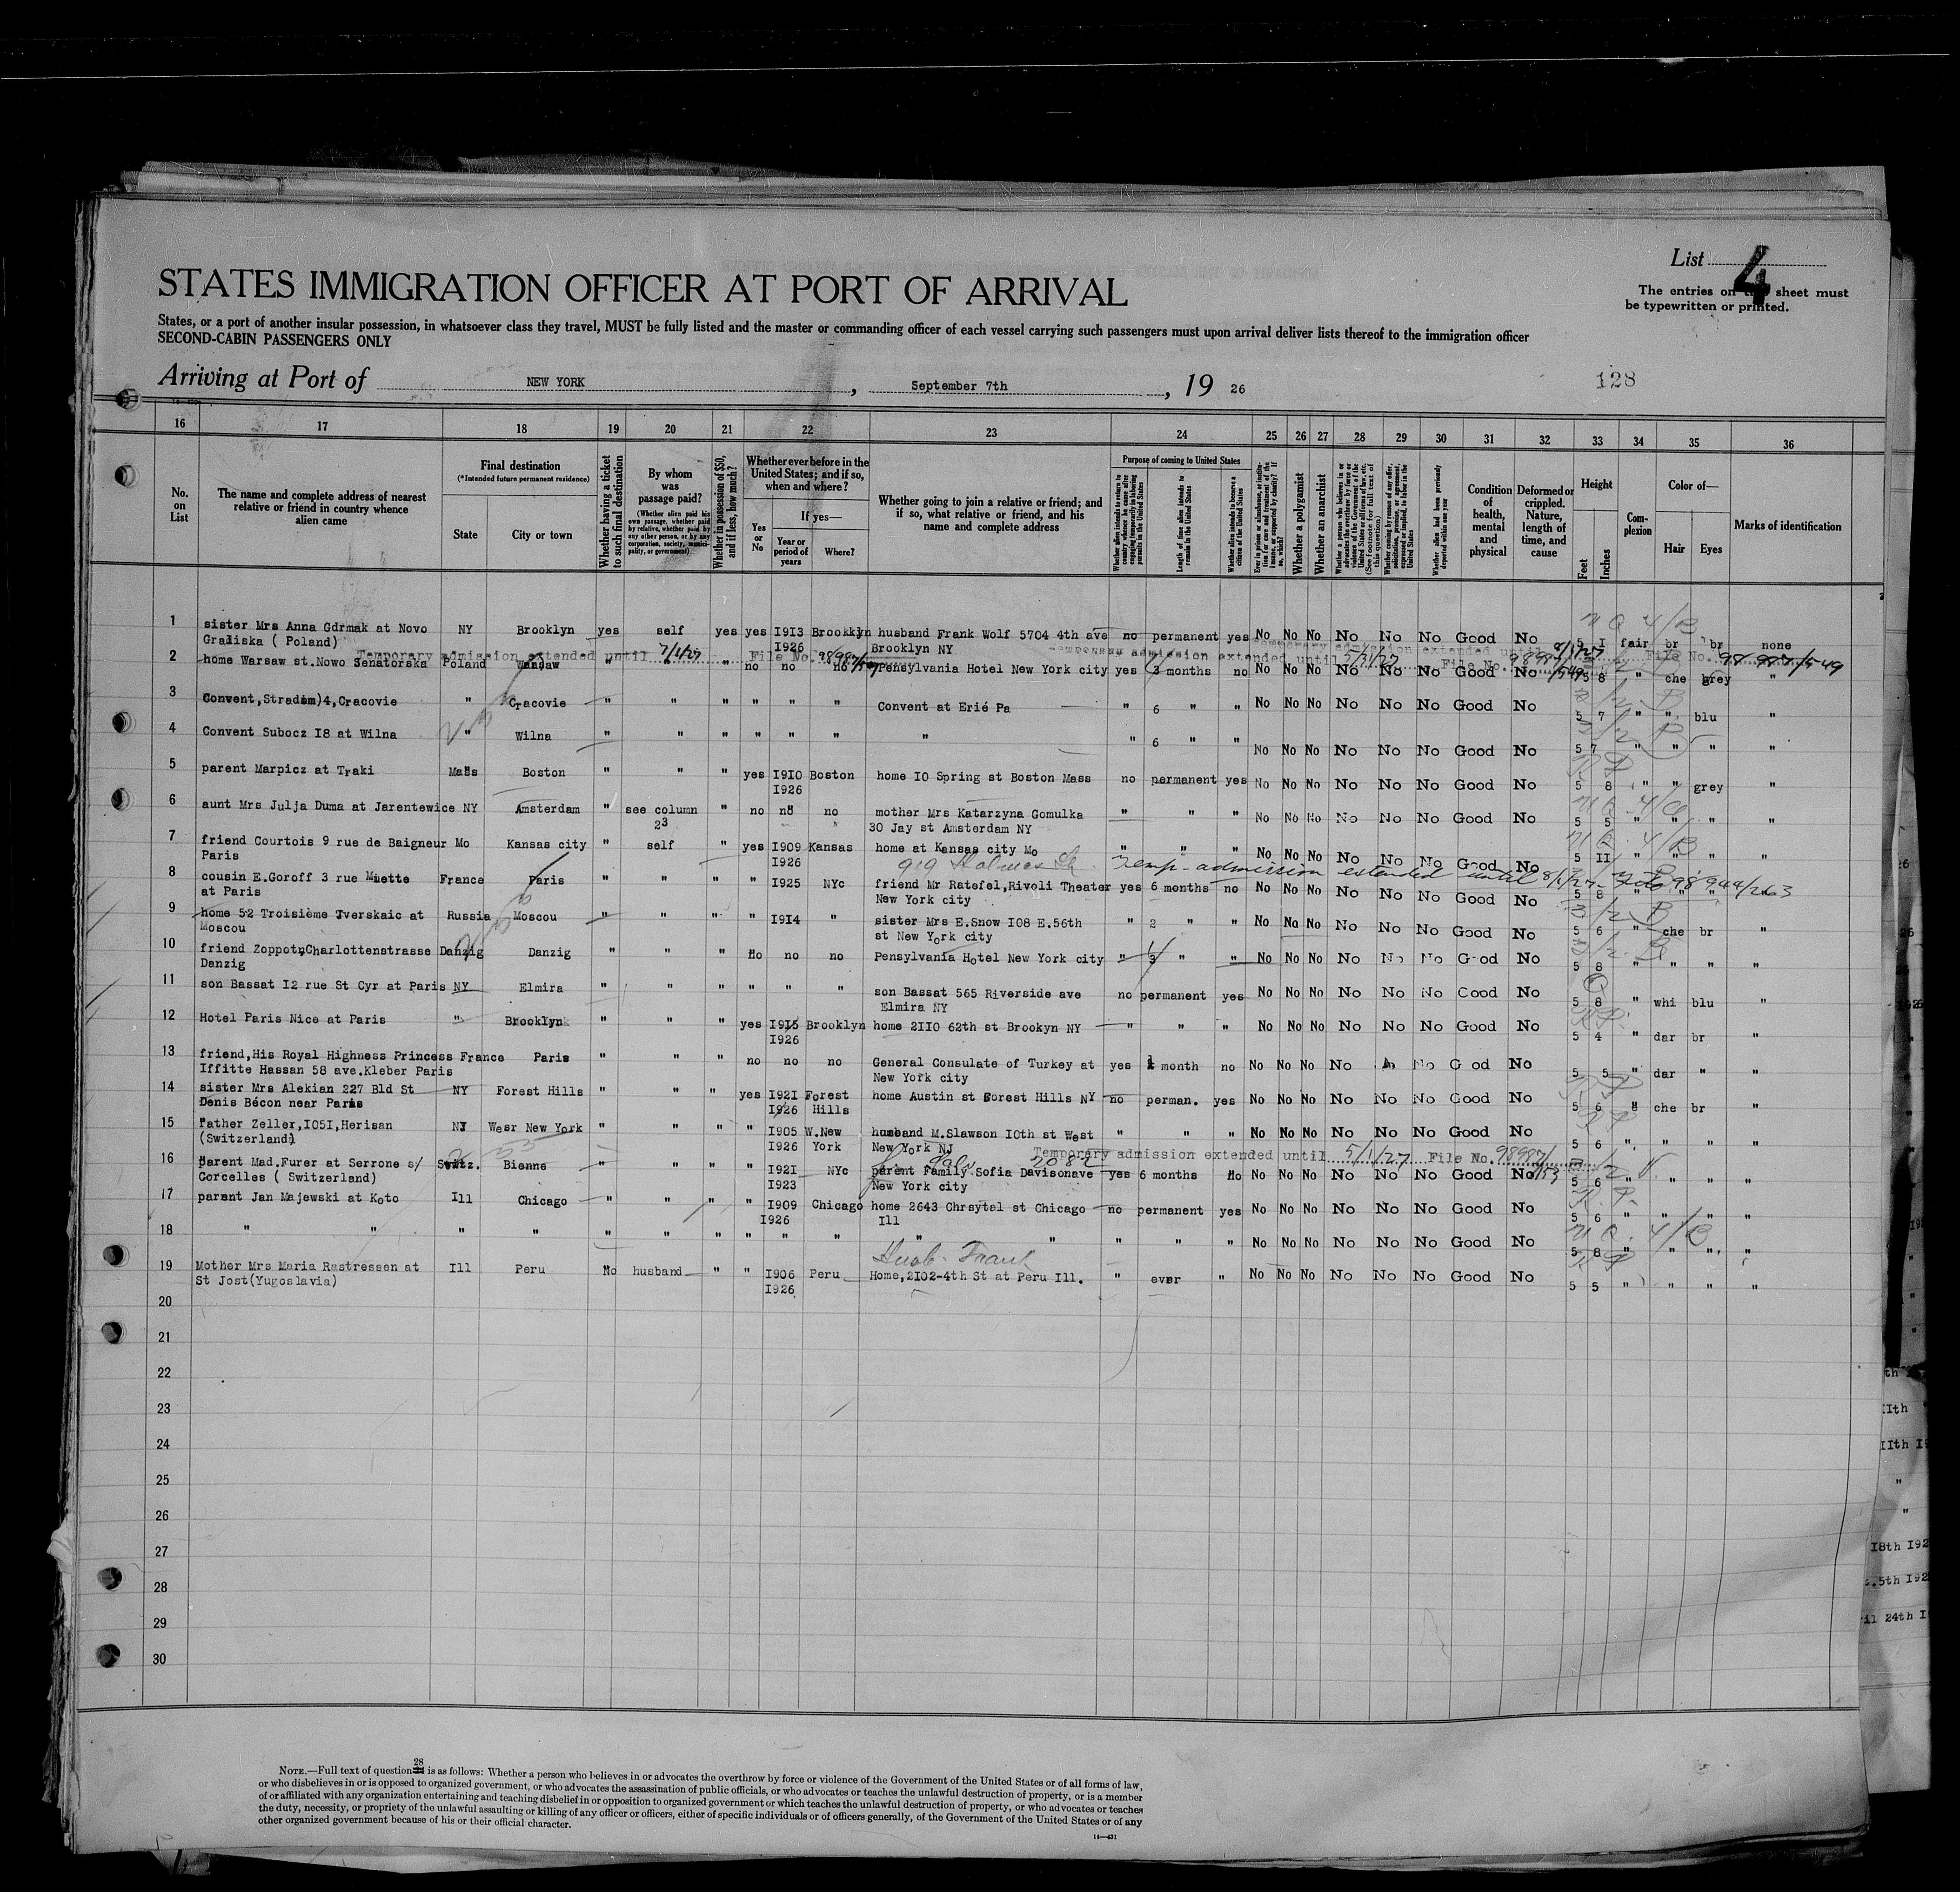 List 4
The entries on this sheet must
be typewritten or printed.
STATES IMMIGRATION OFFICER AT PORT OF ARRIVAL
States, or a port of another insular possession, in whatsoever class they travel, MUST be fully listed and the master or commanding officer of each vessel carrying such passengers must upon arrival deliver lists thereof to the immigration officer
SECOND-CABIN PASSENGERS ONLY
Arriving at Port of NEW YORK , September 7th , 19 26
128
16 17 18 19 20 21 22 23 24 25 26 27 28 29 30 31 32 33 34 35 36
No. on List
The name and complete address of nearest relative or friend in country whence alien came
Final destination
(*Intended future permanent residence)
State
City or town
Whether having a ticket to such final destination
By whom was passage paid?
(Whether alien paid his own passage, whether paid by relative, whether paid by any other person, or by any corporation, society, municipality, or government)
Whether in possession of $50, and if less, how much?
Whether ever before in the United States; and if so, when and where?
Yes or No
If yes—
Year or period of years
Where?
Whether going to join a relative or friend; and if so, what relative or friend, and his name and complete address
Purpose of coming to United States
Length of time alien intends to remain in the United States
Whether alien intends to become a citizen of the United States
Whether a polygamist
Whether an anarchist
(See footnote for full text of this question)
Whether alien had been previously deported within one year
Condition of health, mental and physical
Deformed or crippled. Nature, length of time, and cause
Height
Feet
Inches
Complexion
Color of—
Hair
Eyes
Marks of identification
1 sister Mrs Anna Gdrmak at Novo NY Brooklyn yes self yes yes I9I3 Brookkyn husband Frank Wolf 5704 4th ave no permanent yes No No No No No No Good No 5 I fair br br none
Gradiska ( Poland) I926 Brooklyn NY
Temporary admission extended until 7/1/27 File No. 98987/549
Temporary admission extended until 5/3/27 File No. 98987/549
Temporary admission extended until 8/1/27 File No. 98987/549
2 home Warsaw st.Nowo Senatorska Poland Warsaw " " " no no no Pensylvania Hotel New York city yes 3 months no No No No No No No Good No 5 8 " che grey "
3 Convent,Stradom)4,Cracovie " Cracovie " " " " " " Convent at Erié Pa " 6 " " No No No No No No Good No 5 7 " " blu "
4 Convent Subocz I8 at Wilna " Wilna " " " " " " " " 6 " " No No No No No No Good No 5 7 " " " "
5 parent Marpicz at Traki Mass Boston " " " yes I9I0 Boston home I0 Spring st Boston Mass no permanent yes No No No No No No Good No 5 8 " " grey "
I926
6 aunt Mrs Julja Duma at Jarentewice NY Amsterdam " see column " no no no mother Mrs Katarzyna Gomulka " " " No No No No No No Good No 5 5 " " " "
23 30 Jay st Amsterdam NY
7 friend Courtois 9 rue de Baigneur Mo Kansas city " self " yes I909 Kansas home at Kansas city Mo " " " No No No No No No Good No 5 II " " " "
Paris I926 919 Holmes St
Temp. admission extended until 8/1/27 - File 98944/263
8 cousin E.Goroff 3 rue Muette France Paris " " " " I925 NYc friend Mr Ratefel,Rivoli Theater yes 6 months no No No No No No No Good No 5 8 " " " "
at Paris New York city
9 home 52 Troisième Tverskaic at Russia Moscou " " " " I9I4 " sister Mrs E.Snow I08 E.56th " 2 " " No No No No No No Good No 5 6 " che br "
Moscou st New York city
10 friend Zoppot,Charlottenstrasse Danzig Danzig " " " No no no Pensylvania Hotel New York city " 3 " " No No No No No No Good No 5 8 " " " "
Danzig
11 son Bassat I2 rue St Cyr at Paris NY Elmira " " " " " " son Bassat 565 Riverside ave no permanent yes No No No No No No Good No 5 8 " whi blu "
Elmira NY
12 Hotel Paris Nice at Paris " Brooklyn " " " yes I9I5 Brooklyn home 2II0 62th st Brookyn NY " " " No No No No No No Good No 5 4 " dar br "
I926
13 friend,His Royal Highness Princess France Paris " " " no no no General Consulate of Turkey at yes 1 month no No No No No No Good No 5 5 " dar " "
Iffitte Hassan 58 ave.Kleber Paris New York city
14 sister Mrs Alekian 227 Bld St NY Forest Hills " " " yes I92I Forest home Austin st Forest Hills NY no perman. yes No No No No No No Good No 5 6 " che br "
Denis Bécon near Paris I926 Hills
15 father Zeller,I05I,Herisan NJ Wesr New York " " " " I905 W.New husband M.Slawson I0th st West " " " No No No No No No Good No 5 6 " " " "
(Switzerland) I926 York New York NJ
Temporary admission extended until 5/1/27 File No. 98987/153
16 parent Mad.Furer at Serrone s/ Switz. Bienne " " " " I92I NYc parent Family Sofia Davisonave yes 6 months No No No No No No No Good No 5 6 " " " "
Corcelles ( Switzerland) I923 New York city
17 parent Jan Majewski at Koto Ill Chicago " " " " I909 Chicago home 2643 Chrsytal st Chicago no permanent yes No No No No No No Good No 5 6 " " " "
I926 Ill
18 " " " " " " " " " " " " " " " No No No No No No Good No 5 8 " " " "
Husb. Frank
19 Mother Mrs Maria Rastressen at Ill Peru No husband " " I906 Peru Home,2I02-4th St at Peru Ill. " ever " No No No No No No Good No 5 5 " " " "
St Jost(Yugoslavia) I926
20
21
22
23
24
25
26
27
28
29
30
28
NOTE.—Full text of question is as follows: Whether a person who believes in or advocates the overthrow by force or violence of the Government of the United States or of all forms of law,
or who disbelieves in or is opposed to organized government, or who advocates the assassination of public officials, or who advocates or teaches the unlawful destruction of property, or is a member
of or affiliated with any organization entertaining and teaching disbelief in or opposition to organized government or which teaches the unlawful destruction of property, or who advocates or teaches
the duty, necessity, or propriety of the unlawful assaulting or killing of any officer or officers, either of specific individuals or of officers generally, of the Government of the United States or of any
other organized government because of his or their official character.
14—431